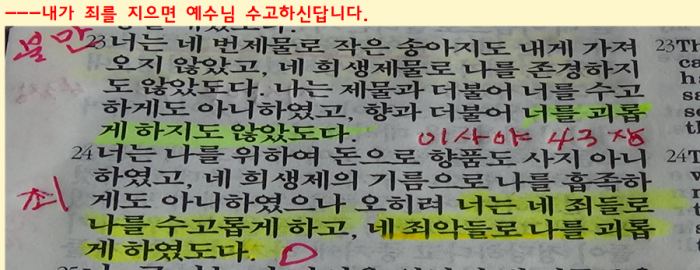 ---내가 죄를 지으면 예수님 수고하신답니다.
불만
23너는 네 번제물로 작은 송아지도 내게 가져 23Th
오지 않았고, 네 희생제물로 나를 존경하지 ca
도 않았도다. 나는 제물과 더불어 너를 수고
하게도 아니하였고, 향과 더불어 너를 괴롭
게 하지도 않았도다. 이사야 43장
24너는 나를 위하여 돈으로 향품도 사지 아니 24T
하였고, 네 희생제의 기름으로 나를 흡족하
죄 게도 아니하였으나 오히려 너는 네 죄들로
나를 수고롭게 하고, 네 죄악들로 나를 괴롭
게 하였도다.